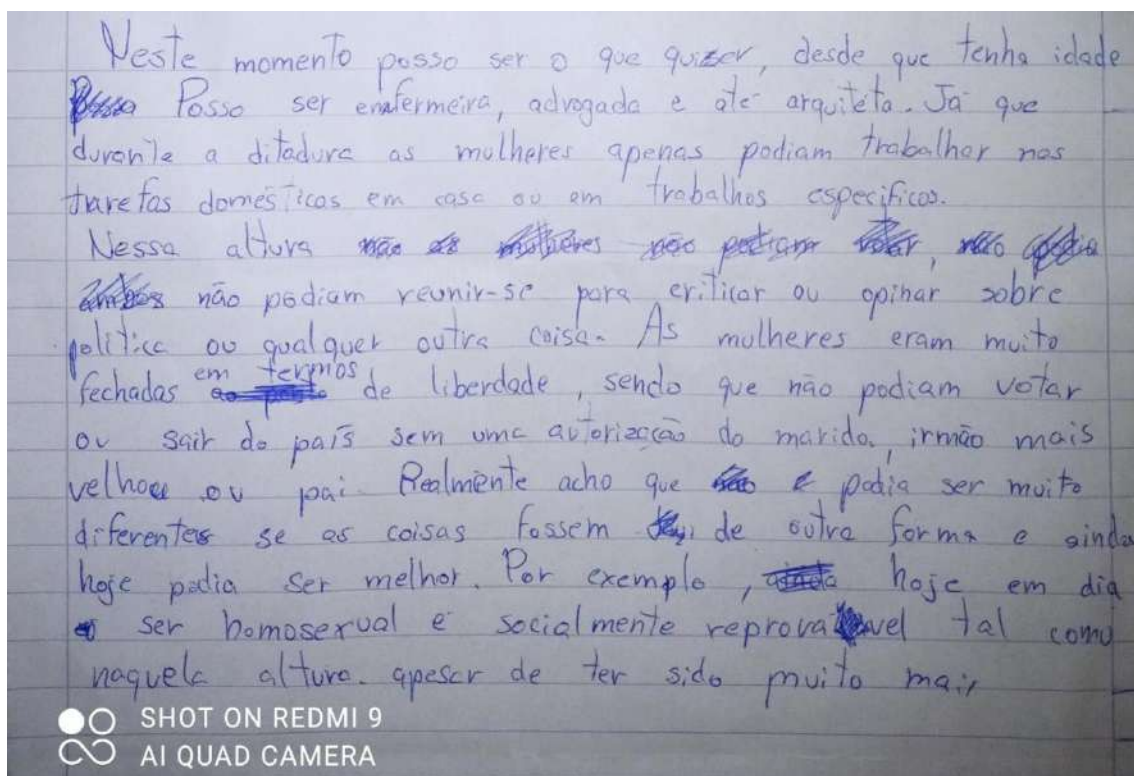 Neste momento posso ser o que quizer, desde que tenha idade
Posso ser enfermeira, advogada e até arquiteta. Já que
durante a ditadura as mulheres apenas podiam trabalhar nas
tarefas domésticas em casa ou em trabalhos específicos.
Nessa altura
não podiam reunir-se para criticar ou opinar sobre
política ou qualquer outra coisa. As mulheres eram muito
fechadas em termos de liberdade, sendo que não podiam votar
ou sair do país sem uma autorização do marido, irmão mais
velho ou pai. Realmente acho que podia ser muito
diferente se as coisas fossem de outra forma e ainda
hoje podia ser melhor. Por exemplo, hoje em dia
ser homosexual é socialmente reprovavel tal como
naquela altura. apesar de ter sido muito mais
SHOT ON REDMI 9
AI QUAD CAMERA